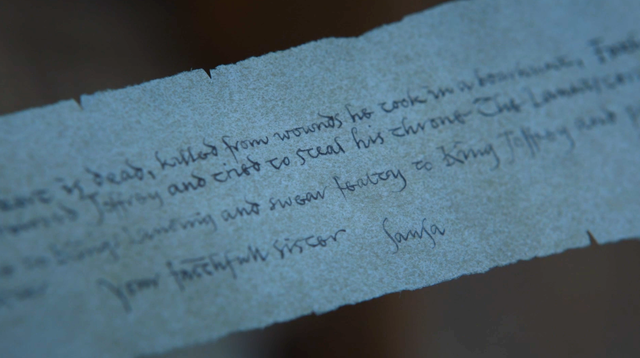 is dead, killed from wounds he took in a boarhunt.
Joffrey and tried to steal his throne The
to Kings Landing and swear fealty to King Joffrey and
Your faithfull sister Sansa